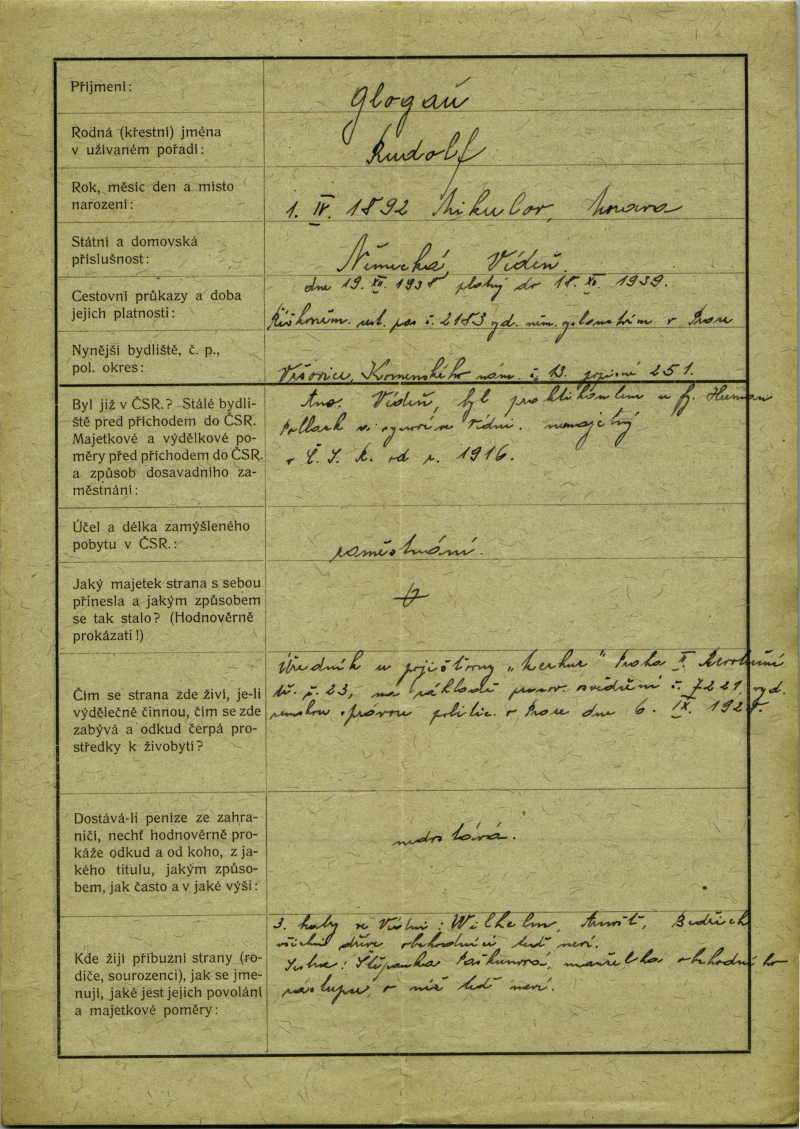 Příjmení:
Glogau
Rodná (křestní) jména
v užívaném pořadí:
Rudolf
Rok, měsíc den a místo
narození:
1. IV. 1892 Mikulov, Morava
Státní a domovská
příslušnost:
Německá, Vídeň
Cestovní průkazy a doba
jejich platnosti:
dne 19. XII. 1938 platný do 18. XII. 1939.
Říškoněm. pas č. 2183 vyd. něm. v Praze
Nynější bydliště, č. p.,
pol. okres:
Vršovice, Komenského nám. č. 13. popisné 251.
Byl již v ČSR.? Stálé bydli-
ště pred příchodem do ČSR.
Majetkové a výdělkové po-
měry před příchodem do ČSR.
a způsob dosavadního za-
městnání:
Ano. Vídeň, byl praktikantem u fy. Herman
Pollack a synové ve Vídni. nemajetný
v Č. S. R. od r. 1916.
Účel a délka zamýšleného
pobytu v ČSR.:
zaměstnání.
Jaký majetek strana s sebou
přinesla a jakým způsobem
se tak stalo? (Hodnověrně
prokázati!)
Čím se strana zde živí, je-li
výdělečně činnou, čím se zde
zabývá a odkud čerpá pro-
středky k živobytí?
Úředník u pojišťovny „Merkur" Praha II. Revoluční
tř. č. 23, na základě pracov. svědření č. 7221 vyd.
zemskou správou politic. v Praze dne 6. IX. 1928.
Dostává-li peníze ze zahra-
ničí, nechť hodnověrně pro-
káže odkud a od koho, z ja-
kého titulu, jakým způso-
bem, jak často a v jaké výši:
nedostává.
Kde žijí příbuzní strany (ro-
diče, sourozenci), jak se jme-
nují, jaké jest jejich povolání
a majetkové poměry:
3. bratři ve Vídni: Wilhelm, Arnošt, Bedřich
všichni dříve obchodníci, teď neví.
Sestra: Štěpánka manželka obchodního
zástupce, o níž teď neví.